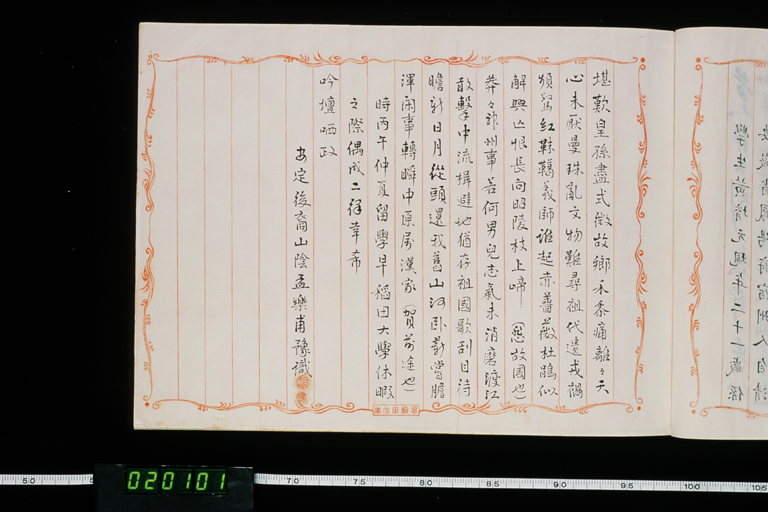 堪歎皇孫盡式微故鄉禾黍痛離々天
心未厭曼珠亂文物難尋祖代遺戎禍
頻驚紅靺鞨義師誰起赤薔薇杜鵑似
解興亡恨長向昭陵枝上啼（愍故國也）
莽々神州事若何男兒志氣未消磨渡江
敢擊中流楫避地猶存祖國歌刮目待
瞻新日月從頭還我舊山河臥薪嘗膽
渾閑事轉瞬中原屬漢家（賀前途也）
時丙午仲夏留學早稻田大學休暇
之際偶成二律幸希
吟壇哂政
安定後裔山陰孟樂甫豫識
學生 二十一歲係
人自清
020101
50
70
75
80
85
90
95
100
105